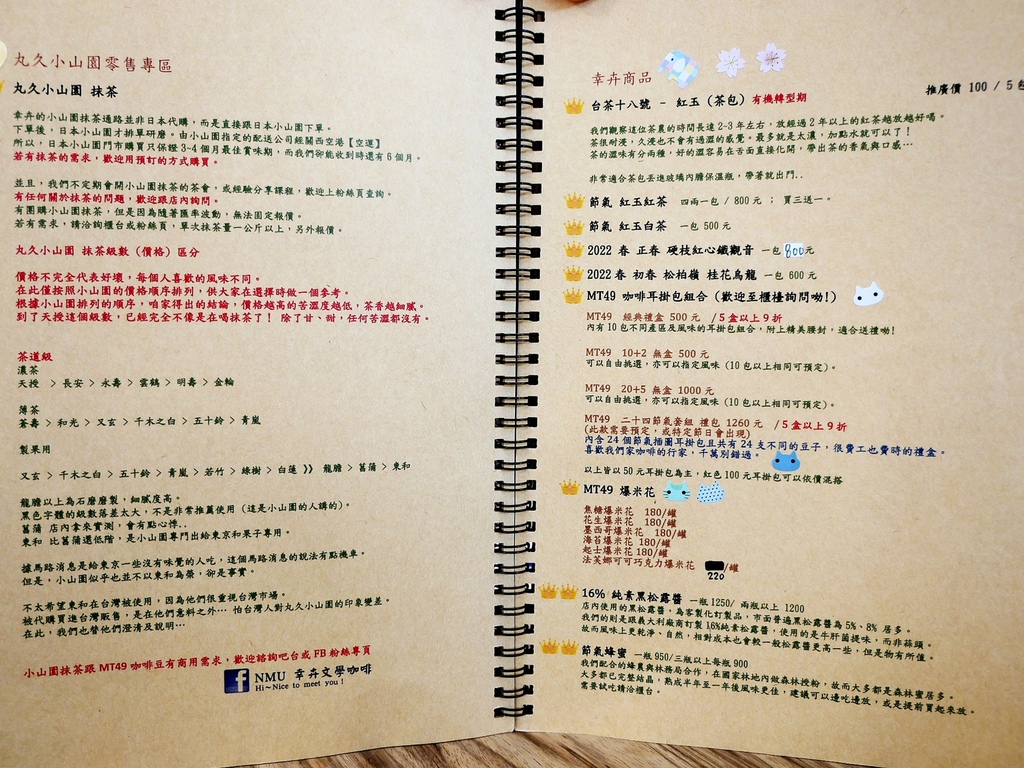 丸久小山園零售專區
丸久小山園 抹茶
幸卉的小山園抹茶通路並非日本代購，而是直接跟日本小山園下單。
下單後，日本小山園才排單研磨。由小山園指定的配送公司經關西空港【空運】
所以，日本小山園門市購買只保證 3-4 個月最佳賞味期，而我們卻能收到時還有 6 個月。
若有抹茶的需求，歡迎用預訂的方式購買。
並且，我們不定期會開小山園抹茶的茶會，或經驗分享課程，歡迎上粉絲頁查詢。
有任何關於抹茶的問題，歡迎跟店內詢問。
有團購小山園抹茶，但是因為隨著匯率波動，無法固定報價。
若有需求，請洽詢櫃台或粉絲頁，單次抹茶量一公斤以上，另外報價。
丸久小山園 抹茶級數（價格）區分
價格不完全代表好壞，每個人喜歡的風味不同。
在此僅按照小山園的價格順序排列，供大家在選擇時做一個參考。
根據小山園排列的順序，咱家得出的結論，價格越高的苦澀度越低，茶香越細膩。
到了天授這個級數，已經完全不像是在喝抹茶了！ 除了甘、甜，任何苦澀都沒有。
茶道級
濃茶
天授 > 長安 > 永壽 > 雲鶴 > 明壽 > 金輪
薄茶
蒼壽 > 和光 > 又玄 > 千木之白 > 五十鈴 > 青嵐
製果用
又玄 > 千木之白 > 五十鈴 > 青嵐 > 若竹 > 綠樹 > 白蓮 》》 龍膽 > 菖蒲 > 東和
龍膽以上為石磨磨製，細膩度高。
黑色字體的級數落差太大，不是非常推薦使用（這是小山園的人講的）。
菖蒲 店內拿來實測，會有點心悸..
東和 比菖蒲還低階，是小山園專門出給東京和果子專用。
據馬路消息是給東京一些沒有味覺的人吃，這個馬路消息的說法有點機車。
但是，小山園似乎也並不以東和為榮，卻是事實。
不太希望東和在台灣被使用，因為他們很重視台灣市場。
被代購買進台灣販售，是在他們意料之外… 怕台灣人對丸久小山園的印象變差。
在此，我們也替他們澄清及說明…
小山園抹茶跟 MT49 咖啡豆有商用需求，歡迎諮詢吧台或 FB 粉絲專頁
f NMU 幸卉文學咖啡
Hi~Nice to meet you！
幸卉商品
推廣價 100 / 5 包
台茶十八號 - 紅玉（茶包）有機轉型期
我們觀察這位茶農的時間長達 2-3 年左右，放經過 2 年以上的紅茶越放越好喝。
茶很耐浸，久浸也不會有過溫的感覺。最多就是太濃，加點水就可以了！
茶的溫味有分兩種，好的溫容易在舌面直接化開，帶出茶的香氣與口感…
非常適合茶包丟進玻璃內膽保溫瓶，帶著就出門..
節氣 紅玉紅茶 四兩一包 / 800 元 ； 買三送一。
節氣 紅玉白茶 一包 500 元
2022 春 正春 硬枝紅心鐵觀音 一包 800元
2022 春 初春 松柏嶺 桂花烏龍 一包 600 元
MT49 咖啡耳掛包組合（歡迎至櫃檯詢問呦!）
MT49 經典禮盒 500 元 /5 盒以上 9 折
內有 10 包不同產區及風味的耳掛包組合，附上精美腰封，適合送禮呦!
MT49 10+2 無盒 500 元
可以自由挑選，亦可以指定風味（10 包以上相同可預定）。
MT49 20+5 無盒 1000 元
可以自由挑選，亦可以指定風味（10 包以上相同可預定）。
MT49 二十四節氣套組 禮包 1260 元 /5 盒以上 9 折
（此款需要預定，或特定節日會出現）
內含 24 個節氣插圖耳掛包且共有 24 支不同的豆子，很費工也費時的禮盒。
喜歡我們家咖啡的行家，千萬別錯過。
以上皆以 50 元耳掛包為主，紅色 100 元耳掛包可以依價混搭
MT49 爆米花
焦糖爆米花 180/罐
花生爆米花 180/罐
墨西哥爆米花 180/罐
海苔爆米花 180/罐
起士爆米花 180/罐
法芙娜可可巧克力爆米花 /罐
220
16% 純素黑松露醬 一瓶 1250/ 兩瓶以上 1200
店內使用的黑松露醬，為客製化訂製品，市面普遍黑松露醬為 5%、8% 居多。
我們的則是跟義大利廠商訂製 16%純素松露醬，使用的是牛肝菌提味，而非蒜頭。
故而風味上更乾淨、自然，相對成本也會較一般松露醬更高一些，但是物有所值。
節氣蜂蜜 一瓶 950/三瓶以上每瓶 900
我們配合的蜂農與林務局合作，在國家林地內做森林授粉，故而大多都是森林蜜居多。
大多都已完整結晶，熟成半年至一年後風味更佳，建議可以邊吃邊放，或是提前買起來放。
需要試吃請洽櫃台。